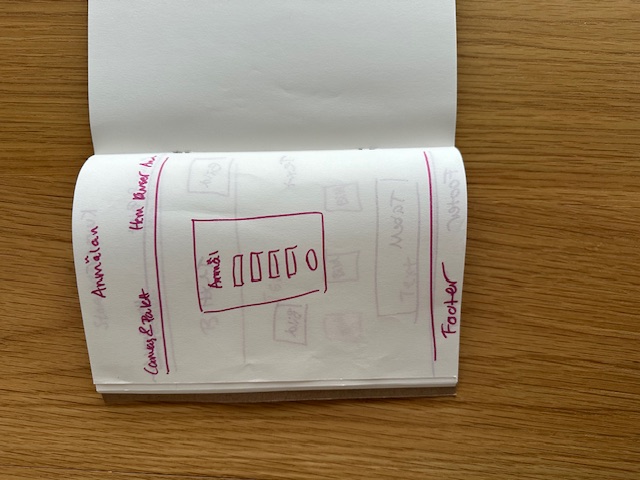 Anmälan
Canvas & Palett Hem Kurser Anm
Anmäl
Footer